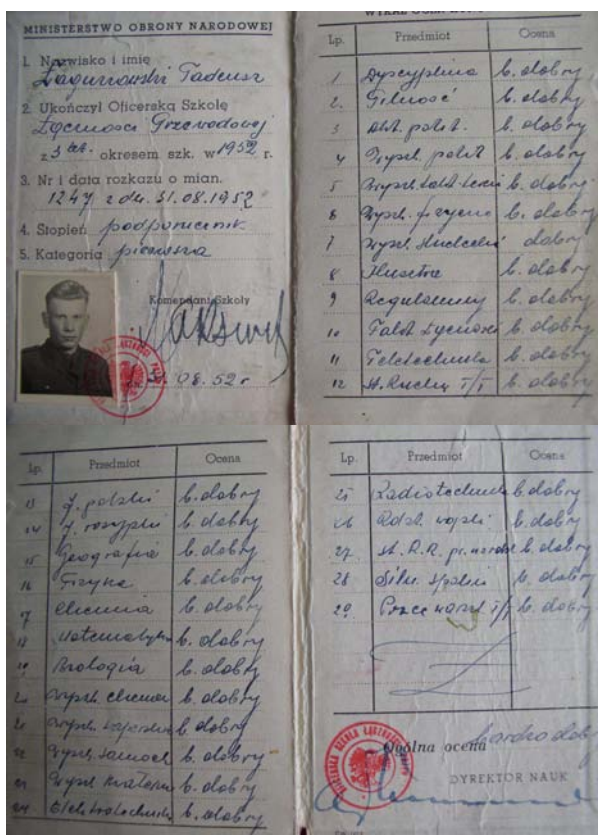 MINISTERSTWO OBRONY NARODOWEJ
1. Nazwisko i imię
Tadeusz
2. Ukończył Oficerską Szkołę
Łączności Przewodowej
z 3 let. okresem szk. w 1952 r.
3. Nr i data rozkazu o mian.
1247 z dn. 31.08.1952
4. Stopień podporucznik
5. Kategoria pierwsza
Komendant Szkoły
08.52 r
Lp. Przedmiot Ocena
1 Dyscyplina b. dobry
2. Pilność b. dobry
3 b. dobry
4 Wyszk. polit b. dobry
5 b. dobry
6 Wyszk. fizyczne b. dobry
7 Wyszk. dobry
8 Musztra b. dobry
9 Regulaminy b. dobry
10 Takt. Łączności b. dobry
11 Teletechnika b. dobry
12 b. dobry
Lp. Przedmiot Ocena
13 J. polski b. dobry
14 J. rosyjski b. dobry
15 Geografia b. dobry
16 Fizyka b. dobry
17 Chemia b. dobry
18 Matematyka b. dobry
19 Biologia b. dobry
20 Wyszk. chemicz b. dobry
21 Wyszk. saperskie b. dobry
22 Wyszk. samoch b. dobry
23 Wyszk. b. dobry
24 Elektrotechnika b. dobry
Lp. Przedmiot Ocena
25 Radiotechnika b. dobry
26 b. dobry
27 b. dobry
28 b. dobry
29 b. dobry
Ogólna ocena bardzo dobry
DYREKTOR NAUK